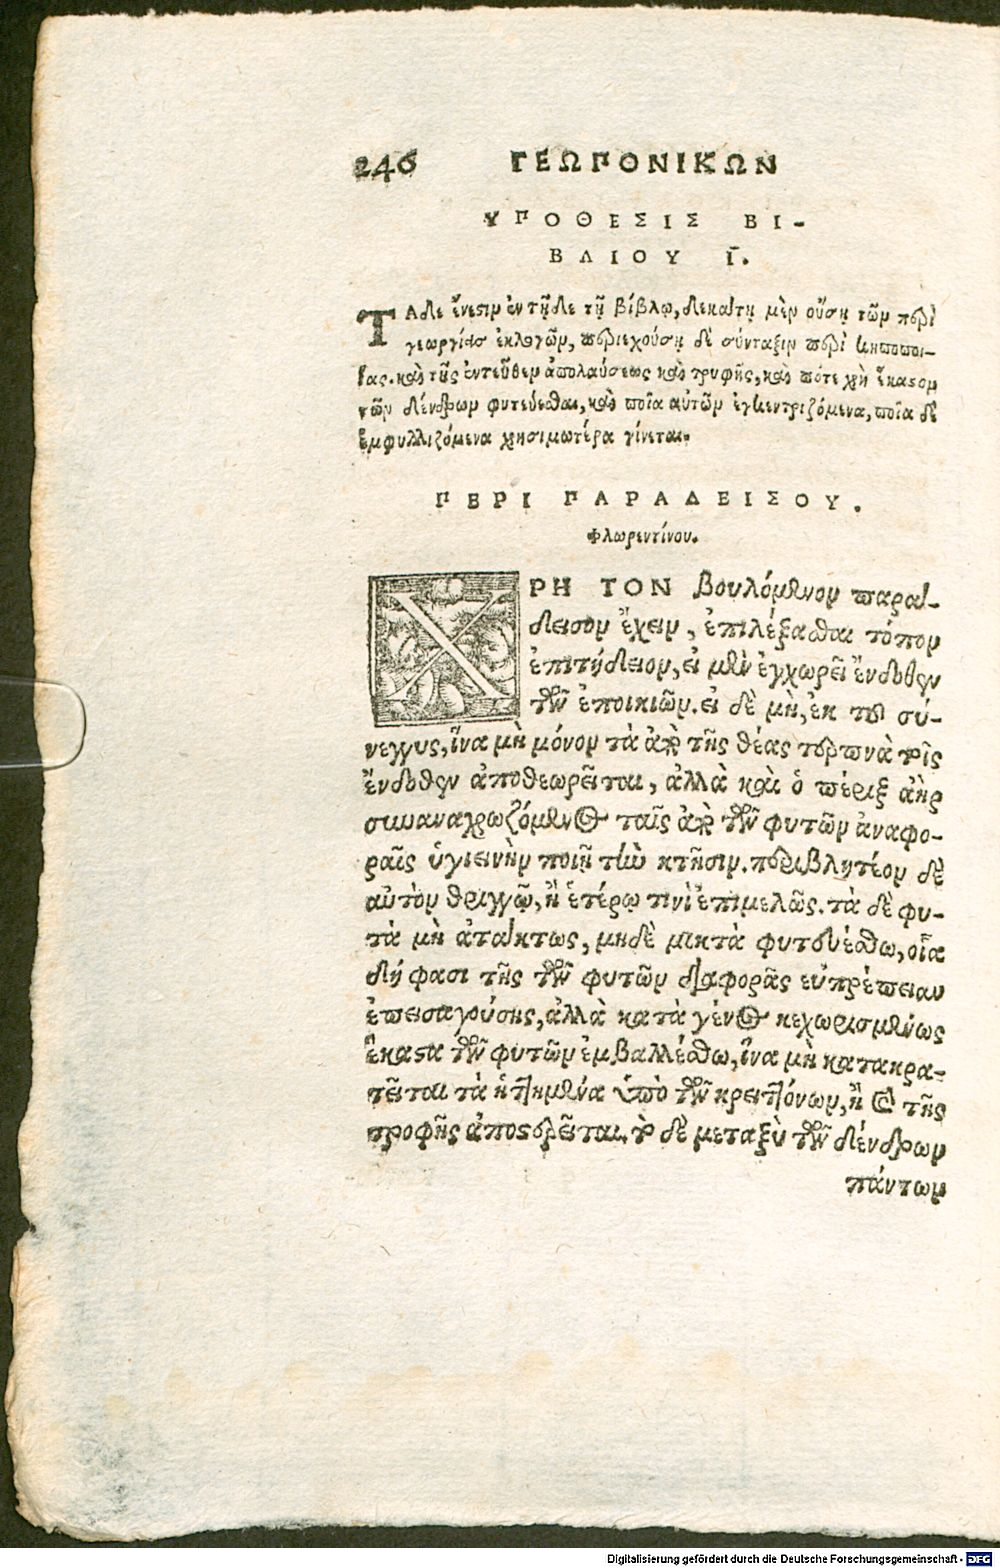 246 ΓΕΩΠΟΝΙΚΩΝ
ΥΠΟΘΕΣΙΣ ΒΙ-
ΒΛΙΟΥ Ι̅.
ΤΑδε ἔνεστιν ἐν τῇδε τῇ βίβλῳ, δεκάτῃ μὲν οὔσῃ τῶν περὶ
γεωργίας ἐκλογῶν, περιεχούσῃ δὲ σύνταξιν περὶ κηποποι-
ΐας. καὶ τῆς ἐντεῦθεν ἀπολαύσεως καὶ τρυφῆς, καὶ πότε χρὴ ἕκαστον
τῶν δένδρων φυτεύεσθαι, καὶ ποῖα αὐτῶν ἐγκεντριζόμενα, ποῖα δὲ
ἐμφυλλιζόμενα χρησιμωτέρα γίνεται.
ΠΕΡΙ ΠΑΡΑΔΕΙΣΟΥ.
Φλωρεντίνου.
ΧΡΗ ΤΟΝ βουλόμενον παρά-
δεισον ἔχειν, ἐπιλέξασθαι τόπον
ἐπιτήδειον, εἰ μὲν ἐγχωρεῖ ἔνδοθεν
τῶν ἐποικιῶν. εἰ δὲ μὴ, ἐκ τοῦ σύ-
νεγγυς, ἵνα μὴ μόνον τὰ ἀπὸ τῆς θέας τερπνὰ τοῖς
ἔνδοθεν ἀποθεωρεῖται, ἀλλὰ καὶ ὁ πέριξ ἀὴρ
συναναχρωζόμενος ταῖς ἀπὸ τῶν φυτῶν ἀναφο-
ραῖς ὑγιεινὴν ποιῇ τὴν κτῆσιν. περιβλητέον δὲ
αὐτὸν θριγγῷ, ἢ ἑτέρῳ τινὶ ἐπιμελῶς. τὰ δὲ φυ-
τὰ μὴ ἀτάκτως, μηδὲ μικτὰ φυτευέσθω, οἷα
δή φασι τῆς τῶν φυτῶν διαφορᾶς εὐπρέπειαν
ἐπεισαγούσης, ἀλλὰ κατὰ γένος κεχωρισμένως
ἕκαστα τῶν φυτῶν ἐμβαλλέσθω, ἵνα μὴ κατακρα-
τεῖται τὰ ἡττημένα ὑπὸ τῶν κρειττόνων, ἢ καὶ τῆς
τροφῆς ἀποστερεῖται. τὸ δὲ μεταξὺ τῶν δένδρων
πάντων
Digitalisierung gefördert durch die Deutsche Forschungsgemeinschaft - DFG